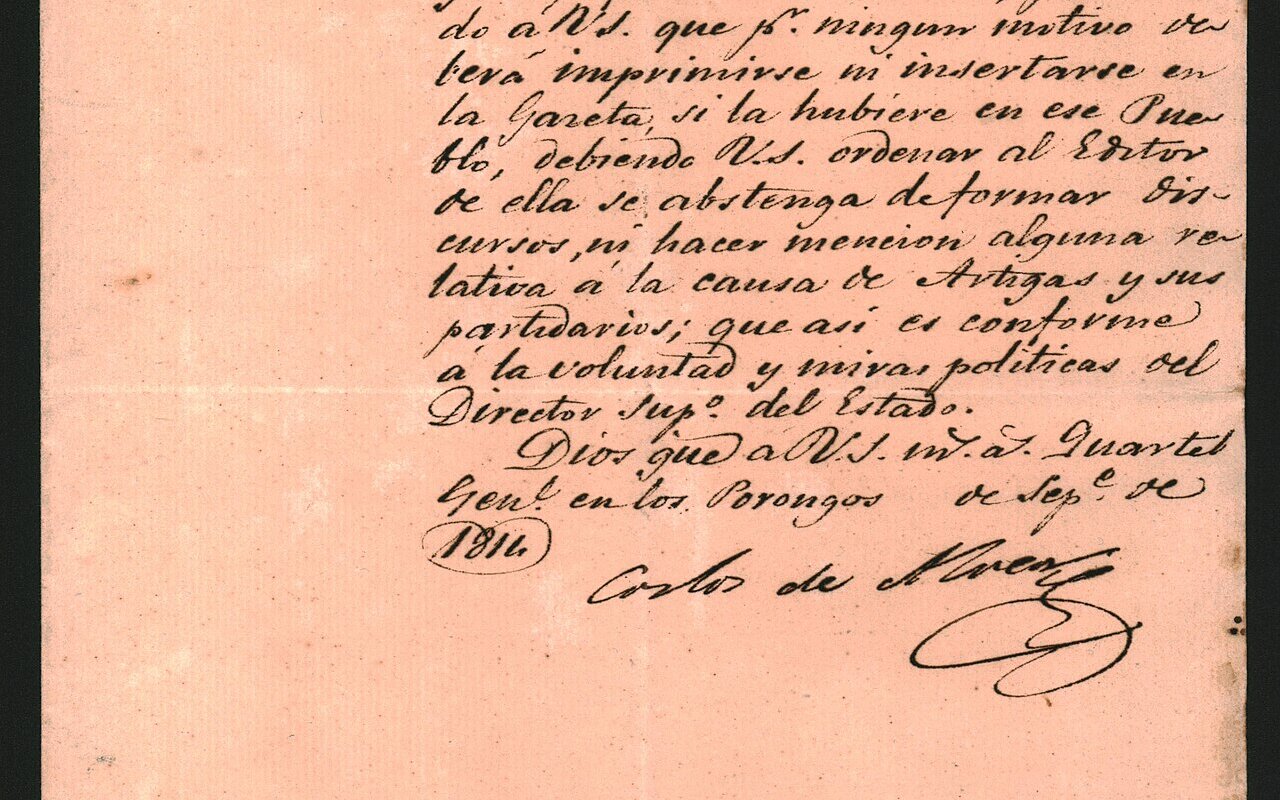 do a V.S. que pr. ningun motivo de
berá imprimirse ni insertarse en
la Gazeta, si la hubiere en ese Pue-
blo, debiendo V.S. ordenar al Editor
de ella se abstenga de formar dis-
cursos, ni hacer mencion alguna re-
lativa á la causa de Artigas y sus
partidarios; que asi es conforme
á la voluntad y miras politicas del
Director Supo. del Estado.
Dios gue a V.S. ms. as. Quartel
Genl. en los Porongos de Sepe. de
1814
Carlos de Alvear